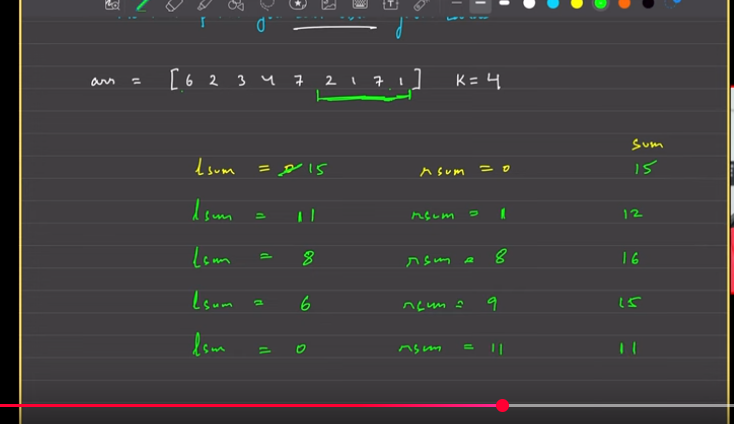 arr = [6 2 3 4 7 2 1 7 1] K=4
sum
lsum = 0 15 rsum = 0 15
lsum = 11 rsum = 1 12
lsum = 8 rsum = 8 16
lsum = 6 rsum = 9 15
lsum = 0 rsum = 11 11